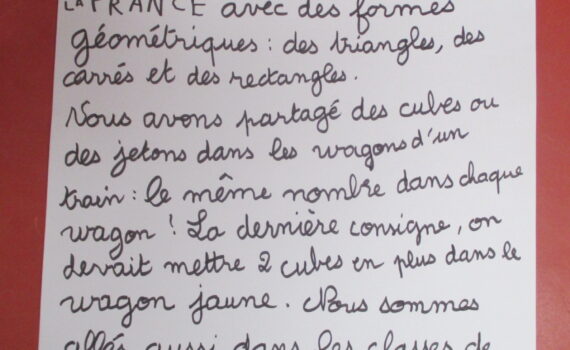 LA FRANCE avec des formes
géométriques : des triangles, des
carrés et des rectangles.
Nous avons partagé des cubes ou
des jetons dans les wagons d'un
train : le même nombre dans chaque
wagon ! La dernière consigne, on
devait mettre 2 cubes en plus dans le
wagon jaune. Nous sommes
allés aussi dans les classes de